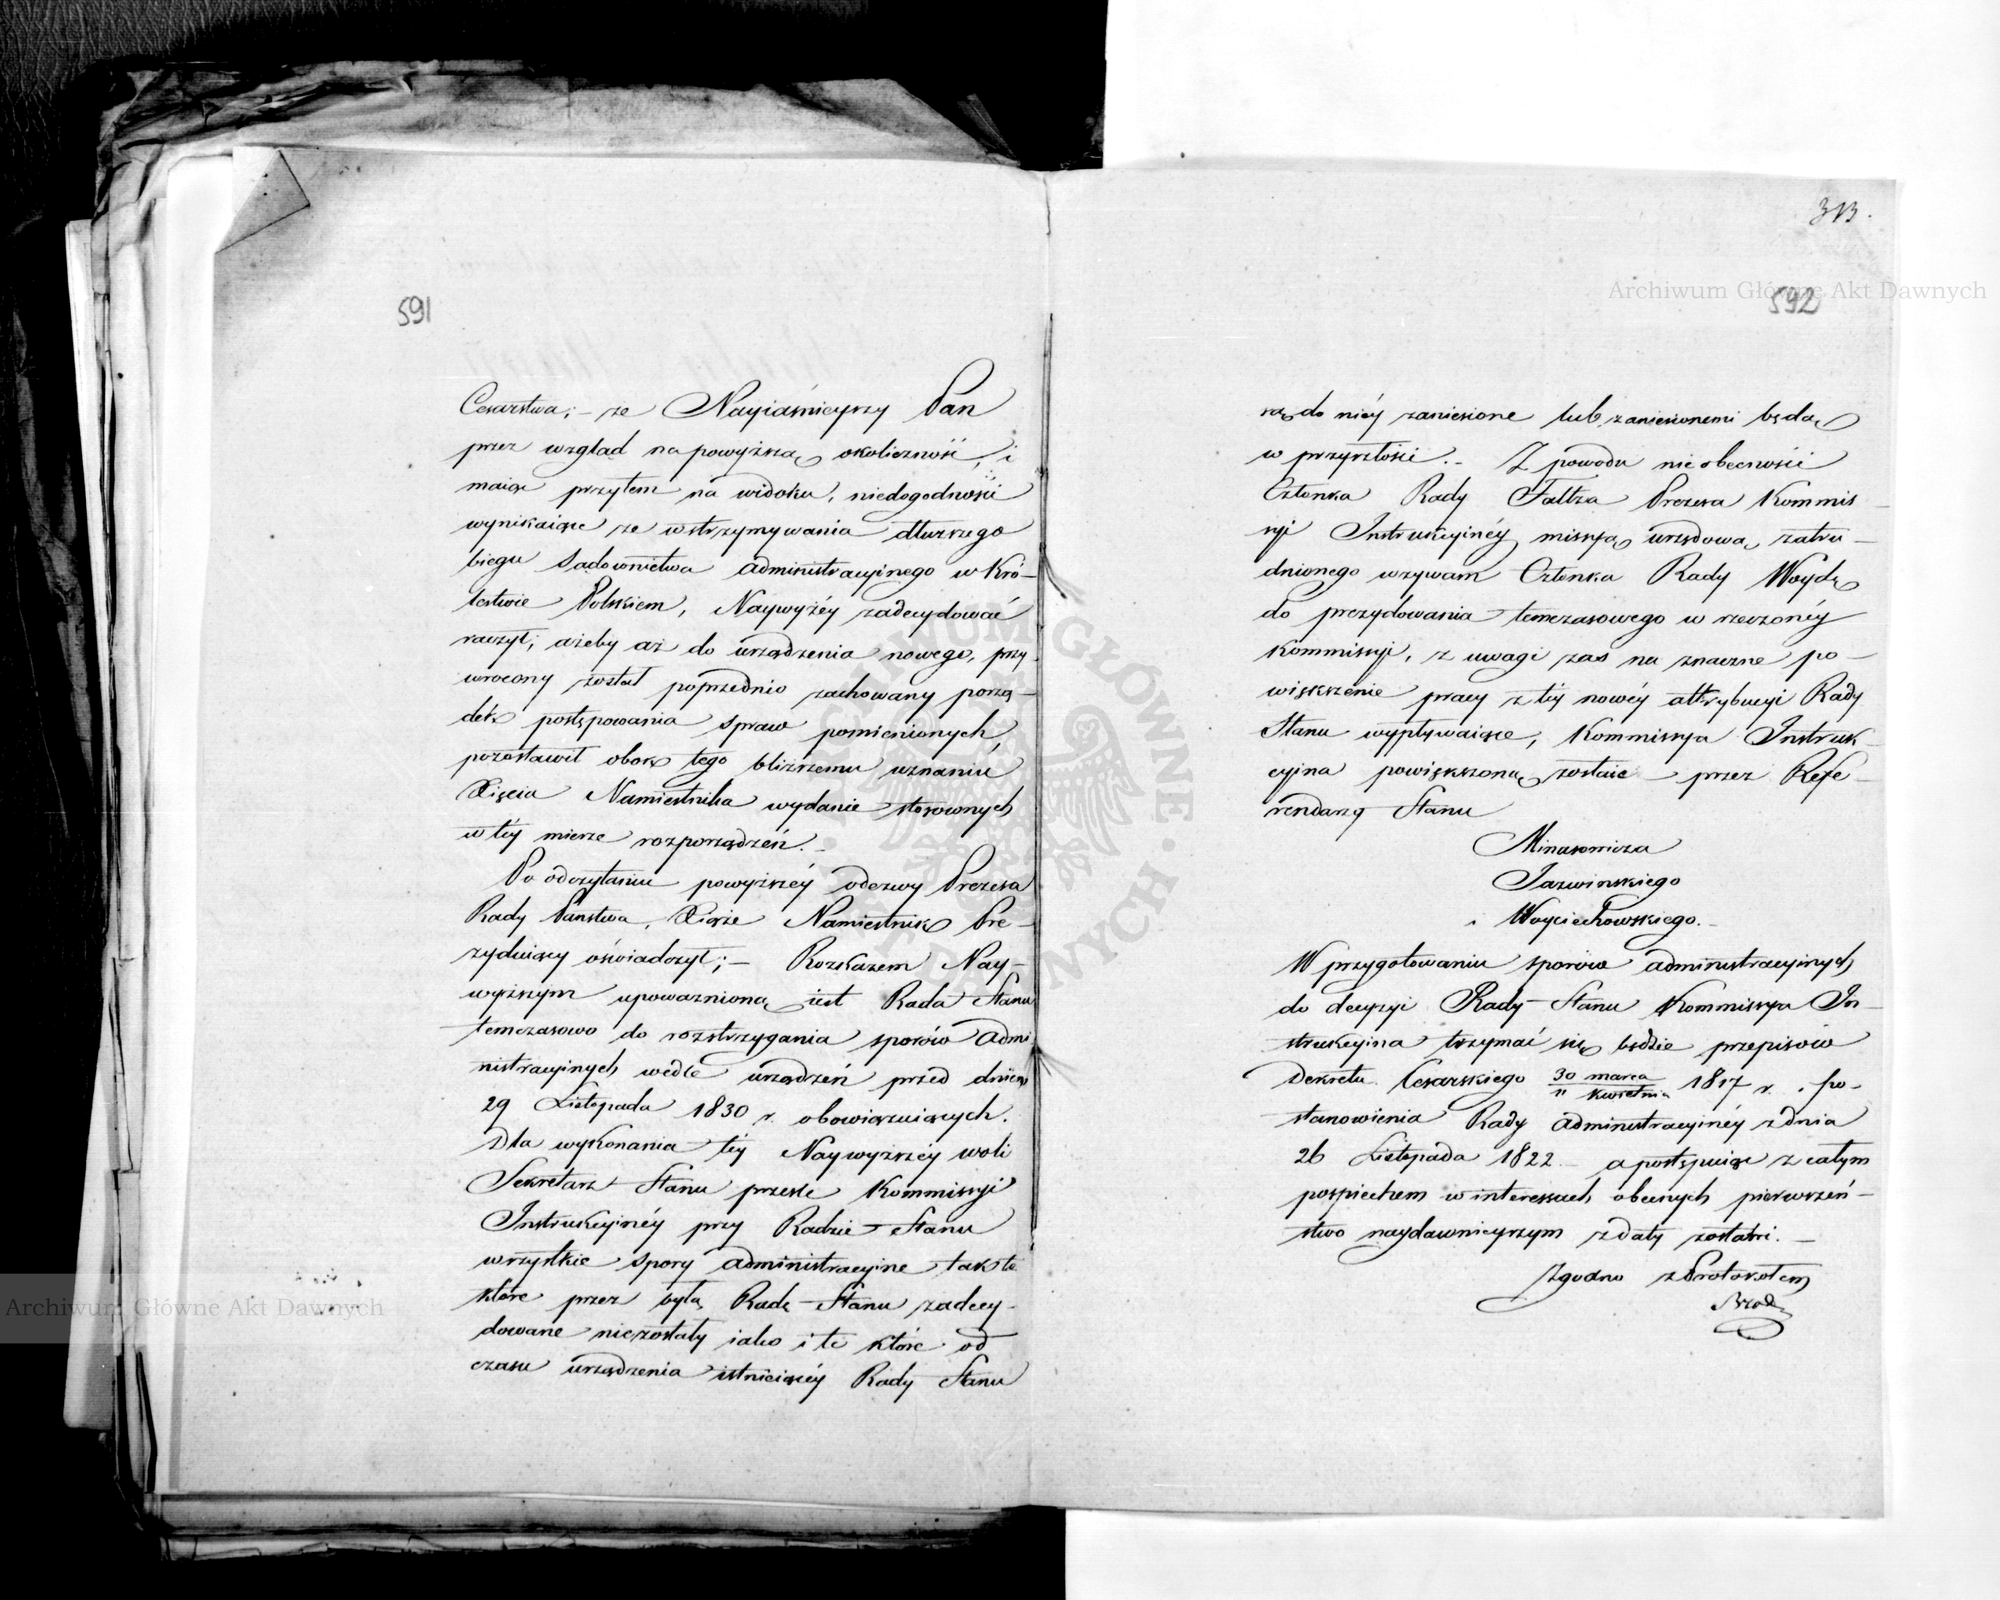 591
Cesarstwa; – że Nayiaśnieyszy Pan
przez wzgląd na powyższą okoliczność, i
maiąc przytem na widoku, niedogodności
wynikaiące ze wstrzymywania dłuższego
biegu Sądownictwa Administracyinego w Kró-
lestwie Polskiem, Naywyżéy zadecydować
raczył; ażeby aż do urządzenia nowego, przy
wrocony został poprzednio zachowany porzą-
dek postępowania spraw pomienionych,
pozostawił obok tego bliższemu uznaniu
Xięcia Namiestnika wydanie stosownych
w téy mierze rozporządzeń. –
Po odczytaniu powyższéy odezwy Prezesa
Rady Państwa, Xiąże Namiestnik Pre-
zyduiący oświadczył; – Rozkazem Nay-
wyższym upoważnioną iest Rada Stanu
temczasowo do rozstrzygania sporów Admi
nistracyinych wedle urządzeń przed dniem
29 Listopada 1830 r. obowiązuiących.
Dla wykonania téy Naywyższéy woli
Sekretarz Stanu prześle Kommissyi
Instrukcyinéy przy Radzie Stanu
wszystkie spory administracyine tak te
które przez byłą Radę Stanu zadecy-
dowane niezostały iako i te które od
czasu urządzenia istnieiącéy Rady Stanu
313.
592
są do niéy zaniesione lub zaniesionemi będą
w przyszłości. – Z powodu nieobecności
Członka Rady Faltza Prezesa Kommis-
syi Instrukcyinéy missyą urzędową zatru-
dnionego wzywam Członka Rady Woydę
do prezydowania temczasowego w rzeczonéy
Kommissyi, z uwagi zaś na znaczne po-
większenie pracy z téy nowéy attrybucyi Rady
Stanu wypływaiące, Kommissya Instruk-
cyina powiększoną zostaie – przez Refe-
rendarzy Stanu
Minasowicza
Jazwinskiego
i Woyciechowskiego. –
W przygotowaniu sporów administracyinych
do decyzyi Rady Stanu Kommissya In-
strukcyina trzymać się będzie przepisów
Dekretu Cesarskiego 30 marca / 11 kwietnia 1817 r. i po-
stanowienia Rady Administracyinéy z dnia
26 Listopada 1822 – a postępuiąc z całym
pospiechem w interessach obecnych pierwszeń-
stwo naydawnieyszym z daty zostawi. –
Zgodno z Protokołem
Archiwum Główne Akt Dawnych
Archiwum Główne Akt Dawnych